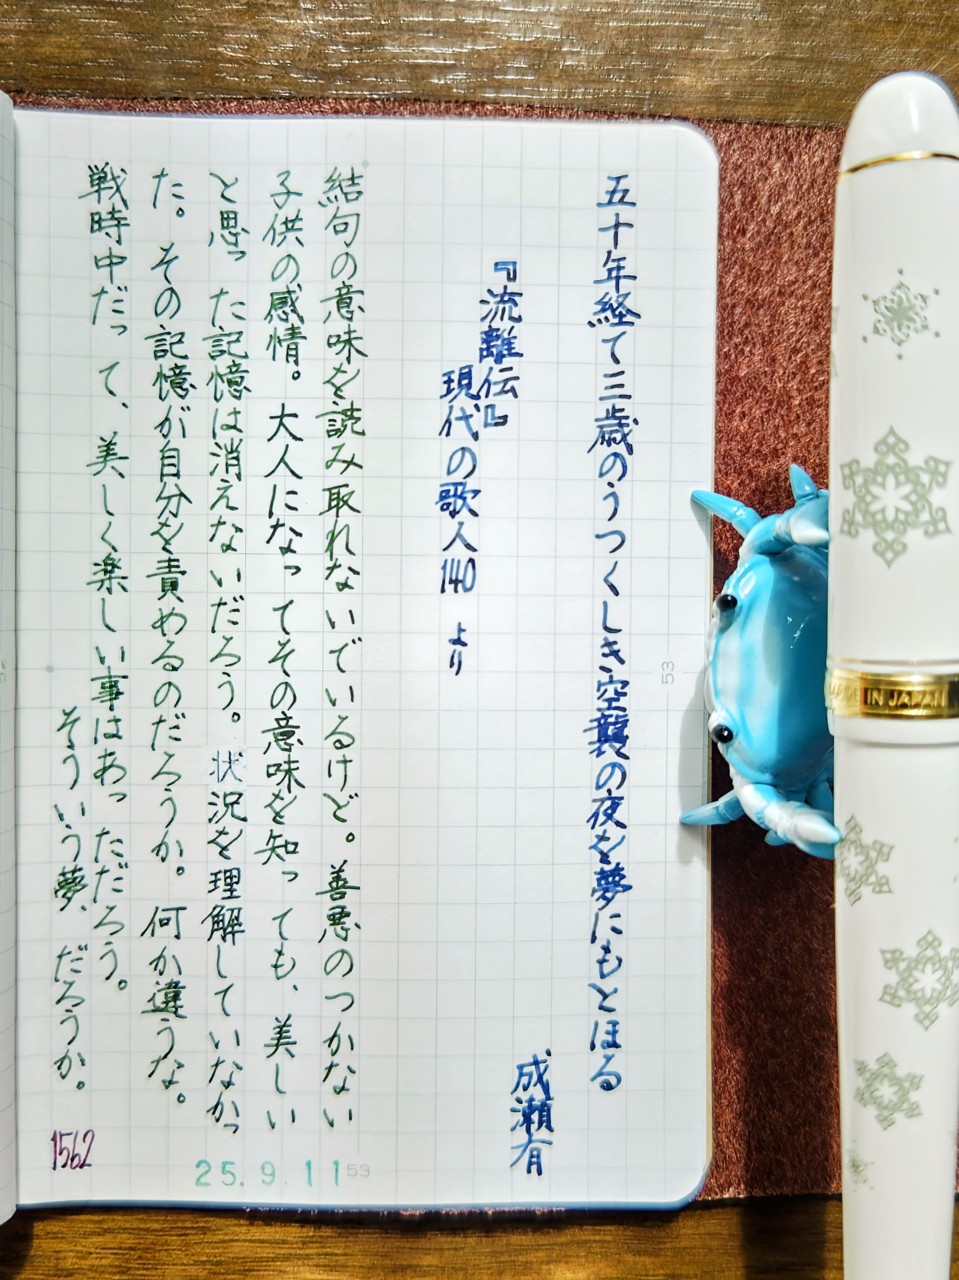 五十年経て三歳のうつくしき空襲の夜を夢にもとほる
成瀬有
『流離伝』
現代の歌人140 より
結句の意味を読み取れないでいるけど。善悪のつかない
子供の感情。大人になってその意味を知っても、美しい
と思った記憶は消えないだろう。状況を理解していなかっ
た。その記憶が自分を責めるのだろうか。何か違うな。
戦時中だって、美しく楽しい事はあっただろう。
そういう夢、だろうか。
1562
25.9.11
53
53
MADE IN JAPAN